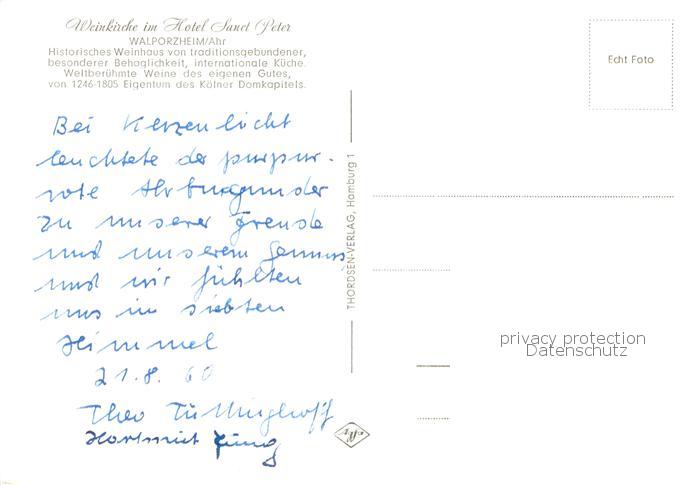 Weinkirche im Hotel Sanct Peter
WALPORZHEIM/Ahr
Historisches Weinhaus von traditionsgebundener,
besonderer Behaglichkeit, internationale Küche.
Weltberühmte Weine des eigenen Gutes,
von 1246-1805 Eigentum des Kölner Domkapitels.
Echt Foto
Bei Kerzenlicht
leuchtete der purpur-
rote Ahrburgunder
zu unserer Freude
und unserem Genuss
und wir fühlten
uns im siebten
Himmel
21.8.60
Theo
Hartmut Jung
THORDSEN-VERLAG, Hamburg 1
Agfa
privacy protection
Datenschutz